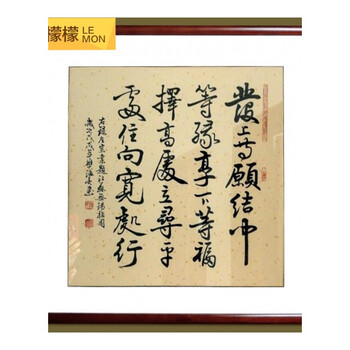 檬檬
LE
MON
發上等願結中
等緣享下等福
擇高處立尋平
處住向寬處行
右錄左宗棠題江蘇無錫梅園
歲次戊戌年